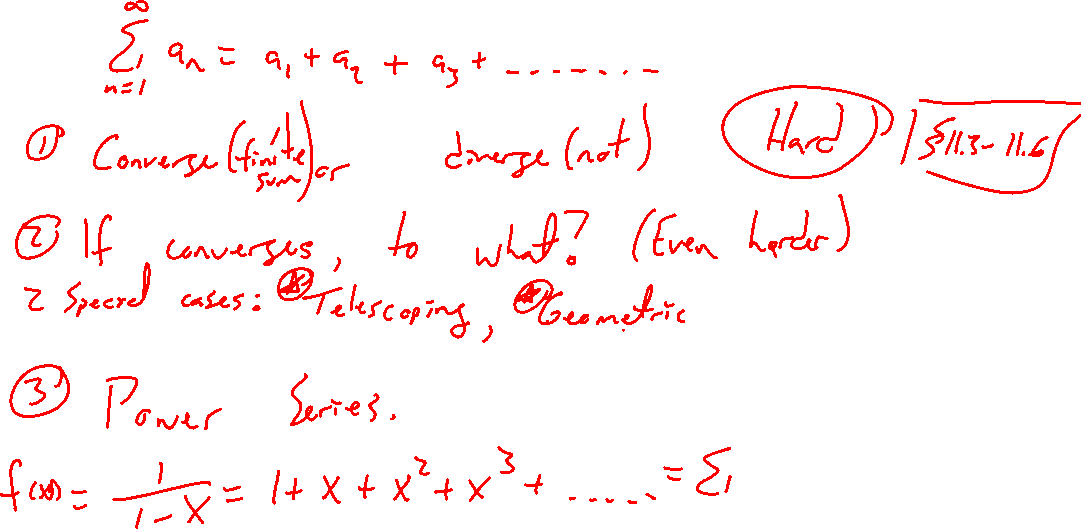 ∞
∑ aₙ = a₁ + a₂ + a₃ + ........
n=1
① Converge (finite sum) or diverge (not) Hard §11.3-11.6
② If converges, to what? (Even harder)
2 Special cases: * Telescoping, * Geometric
③ Power Series.
f(x) = 1/(1-x) = 1 + x + x² + x³ + ...... = ∑